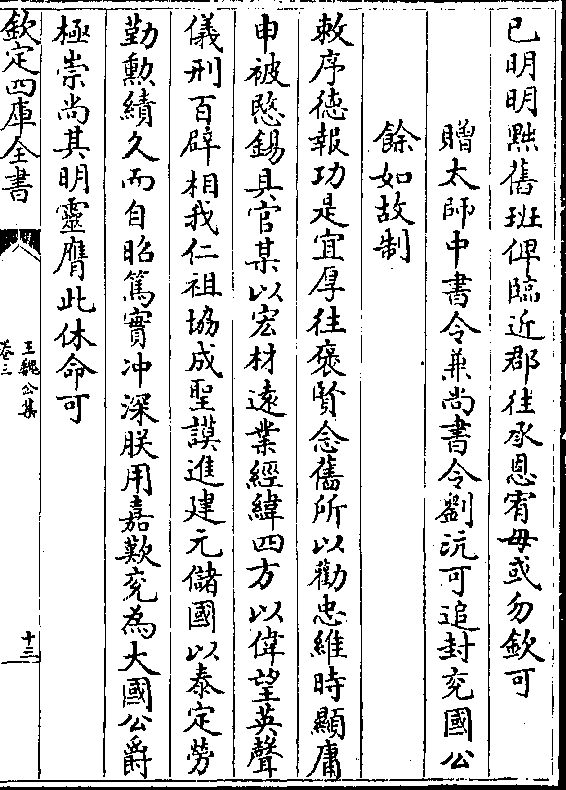 已明明㸃舊班俾臨近郡往承恩宥毋或勿欽可
贈太師中書令兼尚書令劉沆可追封兖國公
餘如故制
敕序徳報功是宜厚往褒賢念舊所以勸忠維時顯庸
申被愍錫具官某以宏材遠業經緯四方以偉望英聲
儀刑百辟相我仁祖協成聖謨進建元儲國以泰定勞
勤勲績久而自昭篤實冲深朕用嘉歎兖為大國公爵
極崇尚其明靈膺此休命可
欽定四庫全書
王魏公集
卷三
十三